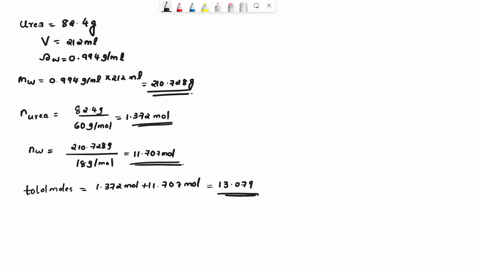 Urea = 82.4g
V = 212 ml
ρw = 0.994g/ml
mw = 0.994 g/ml × 212 ml = 210.728g
nurea = 82.4g / 60g/mol = 1.372 mol
nw = 210.728g / 18g/mol = 11.707 mol
total moles = 1.372 mol + 11.707 mol = 13.079